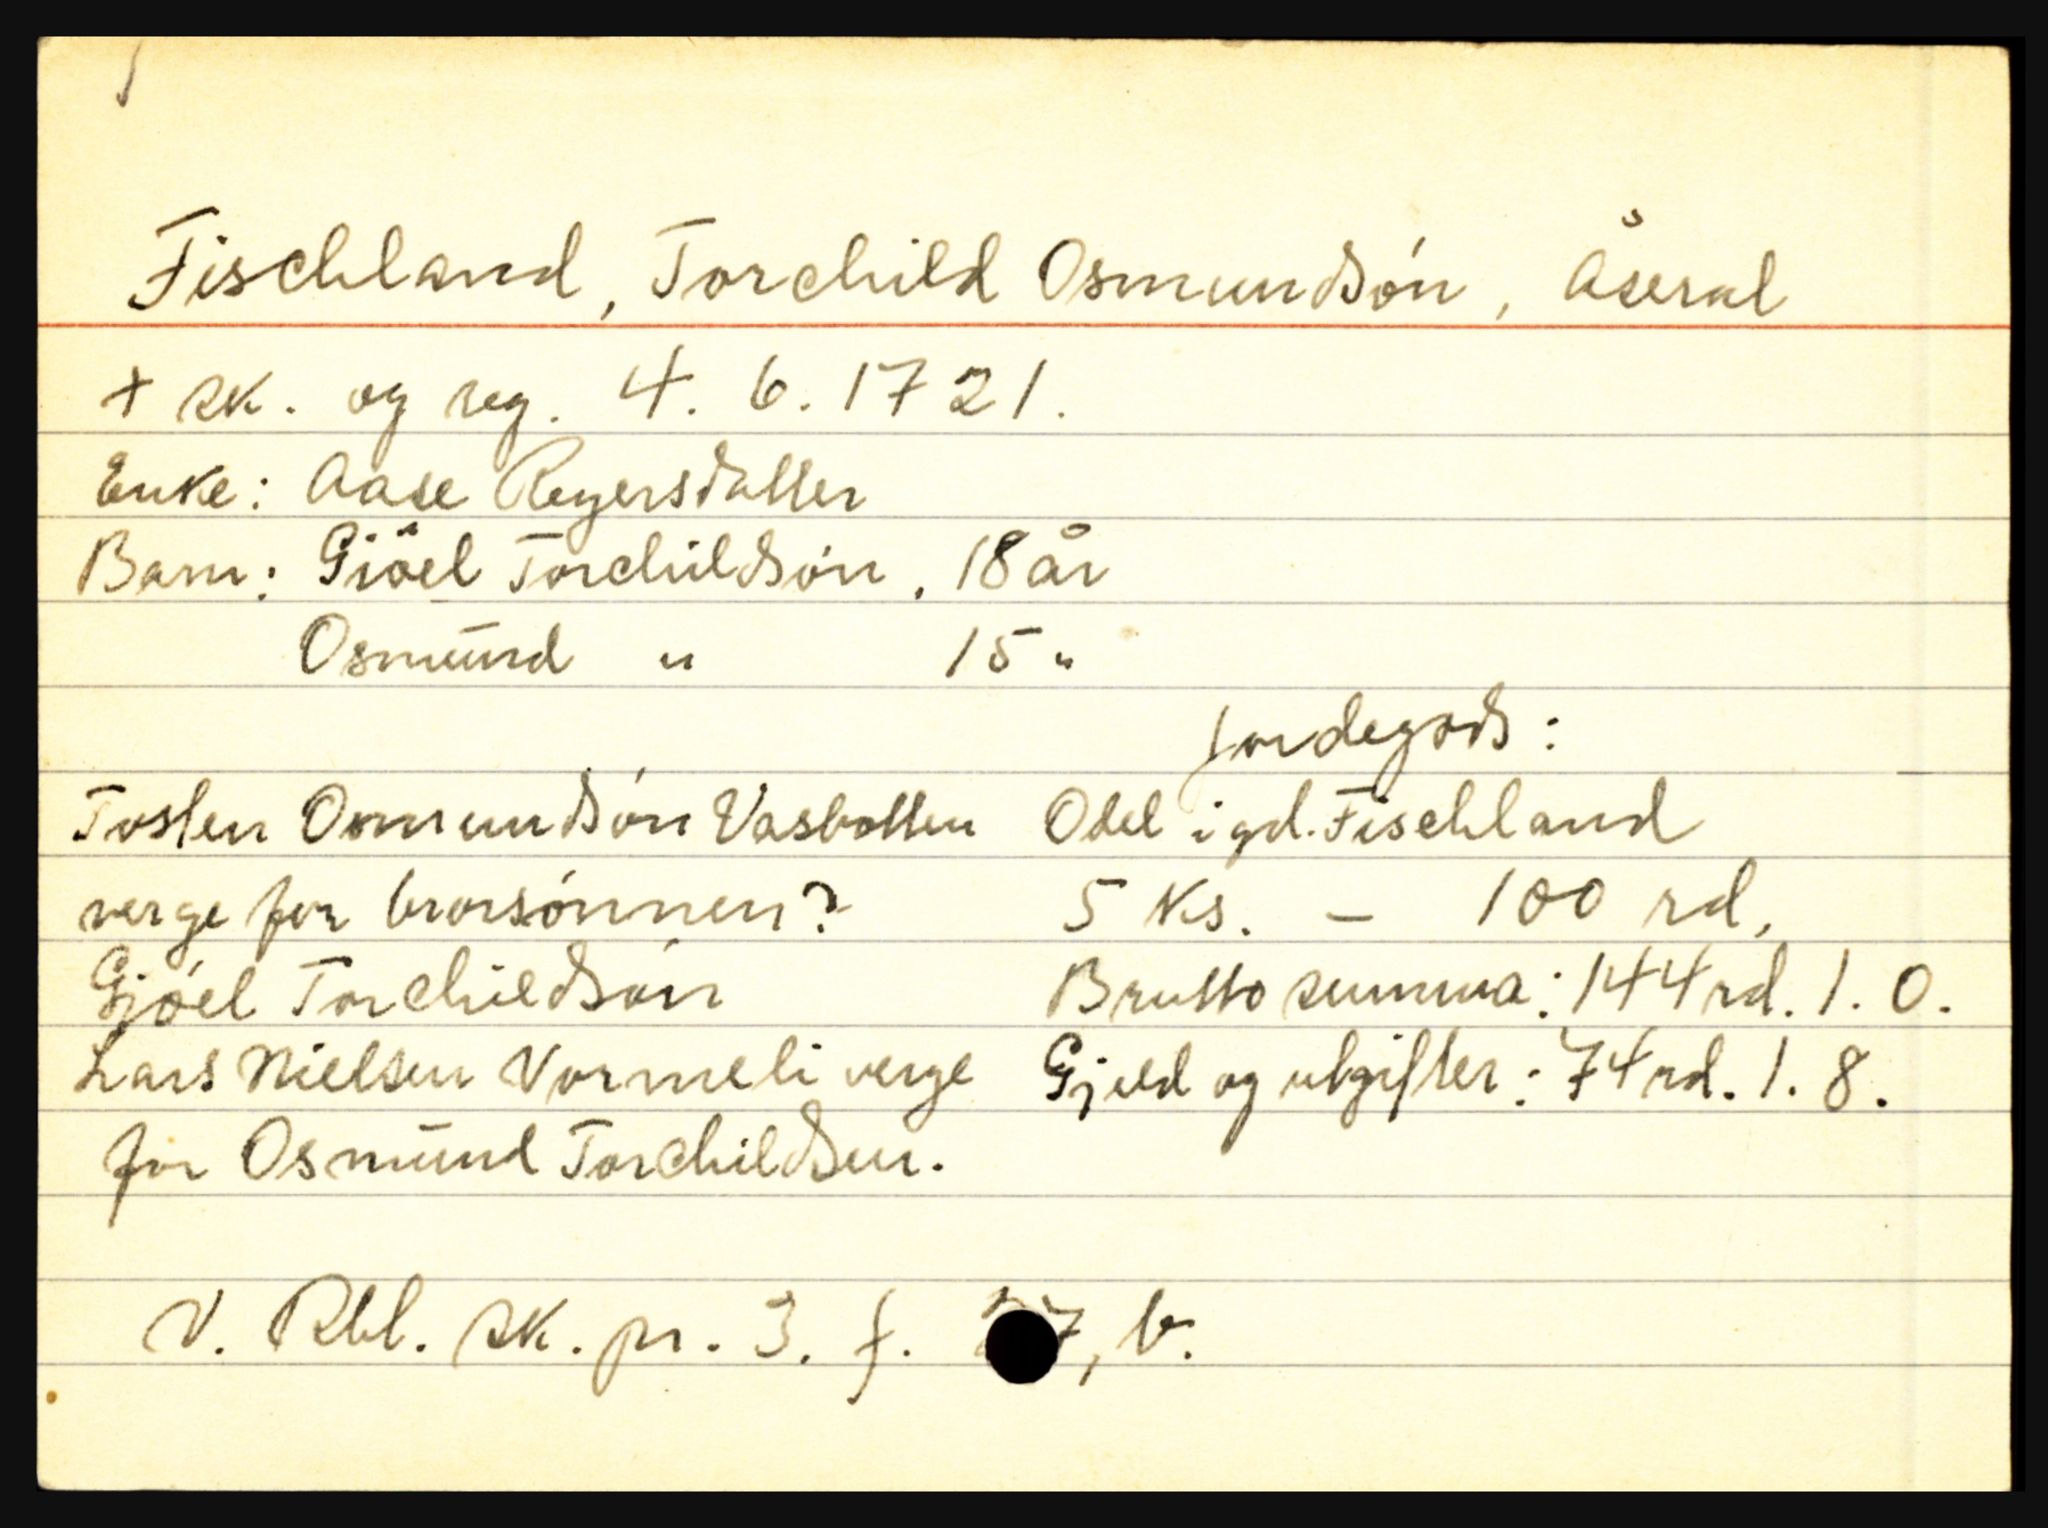 Fischland, Torchild Osmundsón, Åseral
+ sk. og reg. 4. 6. 1721.
Enke: Aase Reyersdatter
Barn: Giöel Torchildsón, 18 år
Osmund " 15 "
Jordegods:
Tosten Osmundsón Vasbotten
verge for brorsónnen?
Gjóel Torchildsón
Lars Nielsen Vormeli verge
for Osmund Torchildsen.
Odel i gd. Fischland
5 ks. - 100 rd,
Brutto summa: 144 rd. 1. 0.
Gjeld og utgifter: 74 rd. 1. 8.
V. Rbl. sk. pr. 3. f. 7, b.